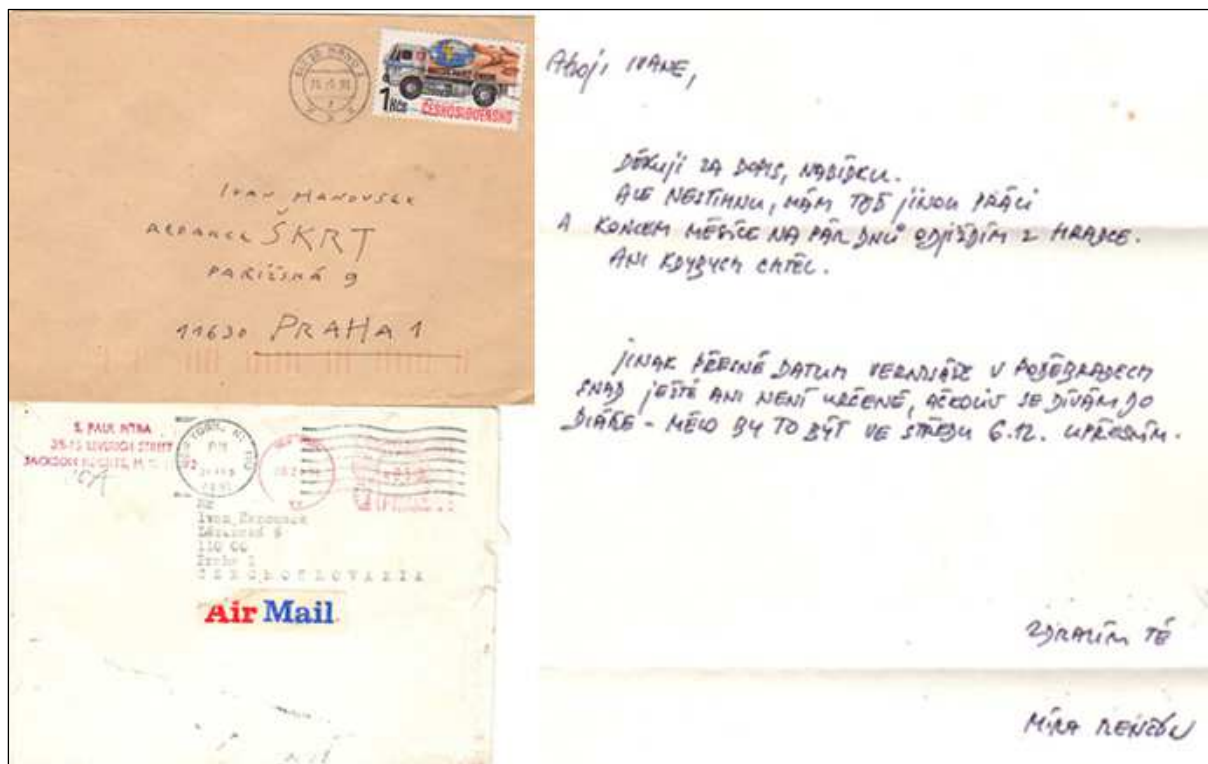 1 Kčs
ČESKOSLOVENSKO
IVAN HANOUSEK
REDAKCE ŠKRT
PAŘÍŽSKÁ 9
11630 PRAHA 1
S. PAUL
STREET
JACKSON HEIGHTS, N.Y.
PM
Ivan
110 00
Praha 1
CZECHOSLOVAKIA
Air Mail
Ahoj, IVANE,
DĚKUJI ZA DOPIS, NABÍDKU.
ALE NESTIHNU, MÁM TEĎ JINOU PRÁCI
A KONCEM MĚSÍCE NA PÁR DNŮ ODJÍŽDÍM Z HRADCE.
ANI KDYBYCH CHTĚL.
JINAK PŘESNÉ DATUM VERNISÁŽE V PODĚBRADECH
SNAD JEŠTĚ ANI NENÍ URČENÉ, AČKOLIV SE DÍVÁM DO
DIÁŘE - MĚLO BY TO BÝT VE STŘEDU 6.12. UPŘESNÍM.
ZDRAVÍM TĚ
MÍRA